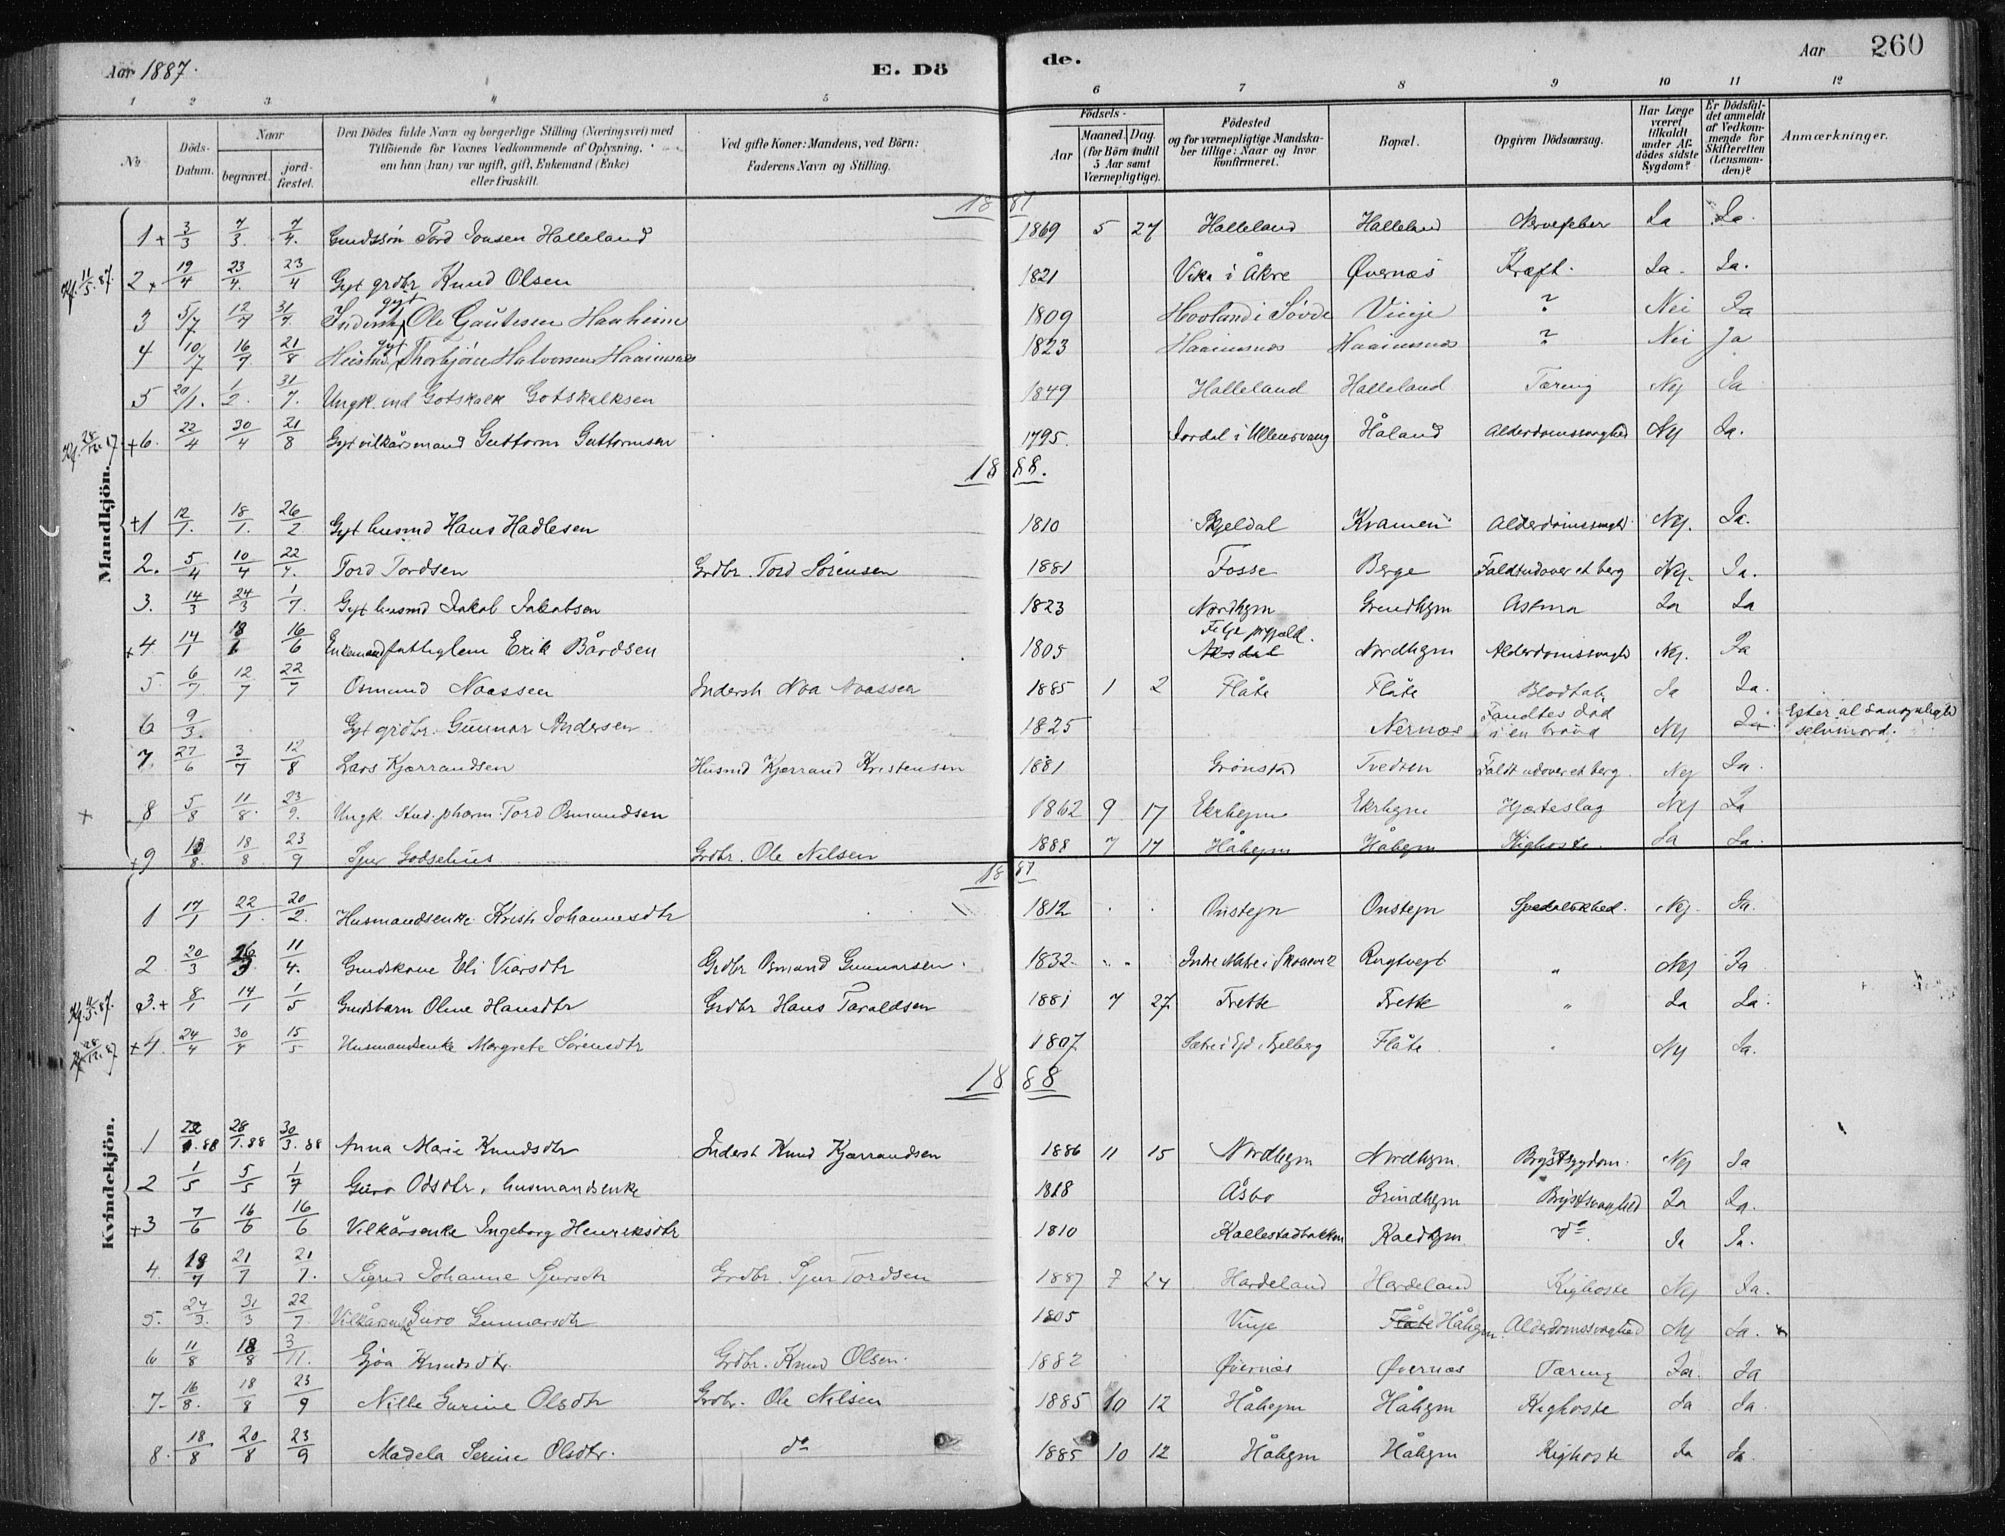 Aar 1887. E. Dö de. Aar 260
1 2 3 4 5 6 7 8 9 10 11 12
No Döds-Datum. Naar begravet. jordfæstet. Den Dödes fulde Navn og borgerlige Stilling (Næringsvei) med Tilföiende for Voxnes Vedkommende af Oplysning, om han (hun) var ugift, gift, Enkemand (Enke) eller fraskilt. Ved gifte Koner: Mandens, ved Börn: Faderens Navn og Stilling. Födsels- Aar Maaned. Dag. (for Börn indtil 5 Aar samt Værnepligtige). Födested og for værnepligtige Mandskaber tillige: Naar og hvor konfirmeret. Bopæl. Opgiven Dödsaarsag. Har Læge været tilkaldt under Afdödes sidste Sygdom? Er Dödsfaldet anmeldt af Vedkommende for Skifteretten (Lensmanden)? Anmærkninger.
Mandkjön.
1887
1 + 3/3 7/3. 7/4. Gmdssön Tord Jonsen Halleland 1869 5 27 Halleland Halleland Nervefeber Ja Ja.
2 + 19/4 23/4. 23/4 Gift grdbr Knud Olsen 1821 Vika i Åkre Øvernæs Kræft. Ja. Ja.
3 5/7 12/7 31/7. Inderst gift Ole Gautesen Hanheim 1809 Hovland i Søvde Vinje ? Nei Ja
4 10/7 16/7 21/8 gift Thorbjörn Halvorsen Haaimsnæs 1823 Haaimsnæs Haaimsnæs ? Nei Ja
5 20/1. 1/2. 31/7. Ungk. ind Gotskalk Gotskalksen 1849 Halleland Halleland Tæring Nej Ja
+6. 22/4 30/4 21/8 Gift vilkårsmand Guttorm Guttormsen 1795. Jordal i Ullensvang Håland Alderdomssvaghed Nej Ja.
1888.
+1 12/1. 18/1. 26/2 Gift husmd Hans Hadlesen 1810 Skjeldal Kvamen Alderdomssvaghd. Nej. Ja.
2. 5/4 10/4 22/7. Tord Tordsen Grdbr. Tord Sörensen 1881 Fosse Berge Faldt udover et berg Nej. Ja.
3. 14/3 24/3 1/7. Gift husmd Jakob Jakobsen 1823 Nordhejm Grindhejm Astma Ja Ja
+4 14/1 18/1 16/6 Enkemand fattiglem Erik Bårdsen 1805 Fitje prgjæld. Nordhejm Alderdomssvaghd Nej. Ja
5. 6/7 12/7 22/7 Osmund Noassen Inderst Noa Noassen 1885 1 2 Flåte Flåte Blodtab Ja Ja.
6 9/3. Gift grdbr. Gunnar Andersen 1825 Nernæs Fandtes död i en brönd Nej Ja. Efter al sandsynlighd selvmord.
7. 27/6 3/7 12/8 Lars Kjærrandsen Husmd Kjærrand Kristensen 1881 Grönstad Tvedten Faldt udover et berg. Nej Ja.
8 5/8 11/8. 23/9. Ungk. Stud. pharm. Tord Osmundsen 1862 9 17 Ekrhejm Ekrhejm Hjerteslag Nej Ja
+9 13/8. 18/8 23/9 Sjur Godselius Grdbr. Ole Nilsen 1888 7 17 Håhejm Håhejm Kighoste. Ja Ja.
Kvindekjön.
1887
1 17/1 22/1. 20/2. Husmandsenke Kristi Johannesdtr 1812 Onstejn Onstejn Spedalskhed. Nej. Ja.
2 20/3 26/3 11/4. Gmdskone Eli Viarsdtr Grdbr Osmund Gunnarsen. 1832. Indre Matre i Skaanevik " Nej Ja
3.+ 8/1 14/1 1/5 Gmdsbarn Oline Hansdtr Grdbr Hans Taraldsen 1881 7 27. Frette Frette " Ja Ja.
+4. 24/4 30/4 15/5 Husmandsenke Margrete Sörensdtr 1807. Sætre i Fjelberg Flåte " Nej Ja.
1888
1 22/1.88 28/1.88 30/3.88 Anna Marie Knudsdtr Inderst Knud Kjærrandsen 1886 11 15 Nordhejm Nordhejm. Brystsygdom. Nej Ja
2 1/5 5/5 1/7 Guro Odsdtr, husmandsenke 1818 Åsbo Grindhejm Brystsvaghed Ja Ja.
+3 7/6 16/6 16/6 Vilkårsenke Ingeborg Henriksdtr 1810 Kallestadbakken do Ja Ja.
4. 18/7 21/7 21/7. Sigrid Johanne Sjursdtr Grdbr. Sjur Tordsen 1887 7 24 Hardeland Hardeland Kighoste Nej Ja.
5. 24/3. 31/3 22/7 Vilkårsenke Guro Gunnarsdtr 1805 Vinje Flåte Håhejm. Alderdomssvaghed Nej Ja.
6 11/8 18/8 3/11. Gjöa Knudsdtr. Grdbr. Knud Olsen. 1882 Øvernæs Øvernæs Tæring Ja. Ja
7- 16/8. 18/8 23/9 Nille Gurine Olsdtr Grdbr. Ole Nilsen 1885 10 12 Håhejm Håhejm Kighoste Ja Ja.
8. 18/8 20/8 23/9 Madela Serine Olsdtr. do 1885 10 12 Håhejm Håhejm Kighoste Ja Ja.